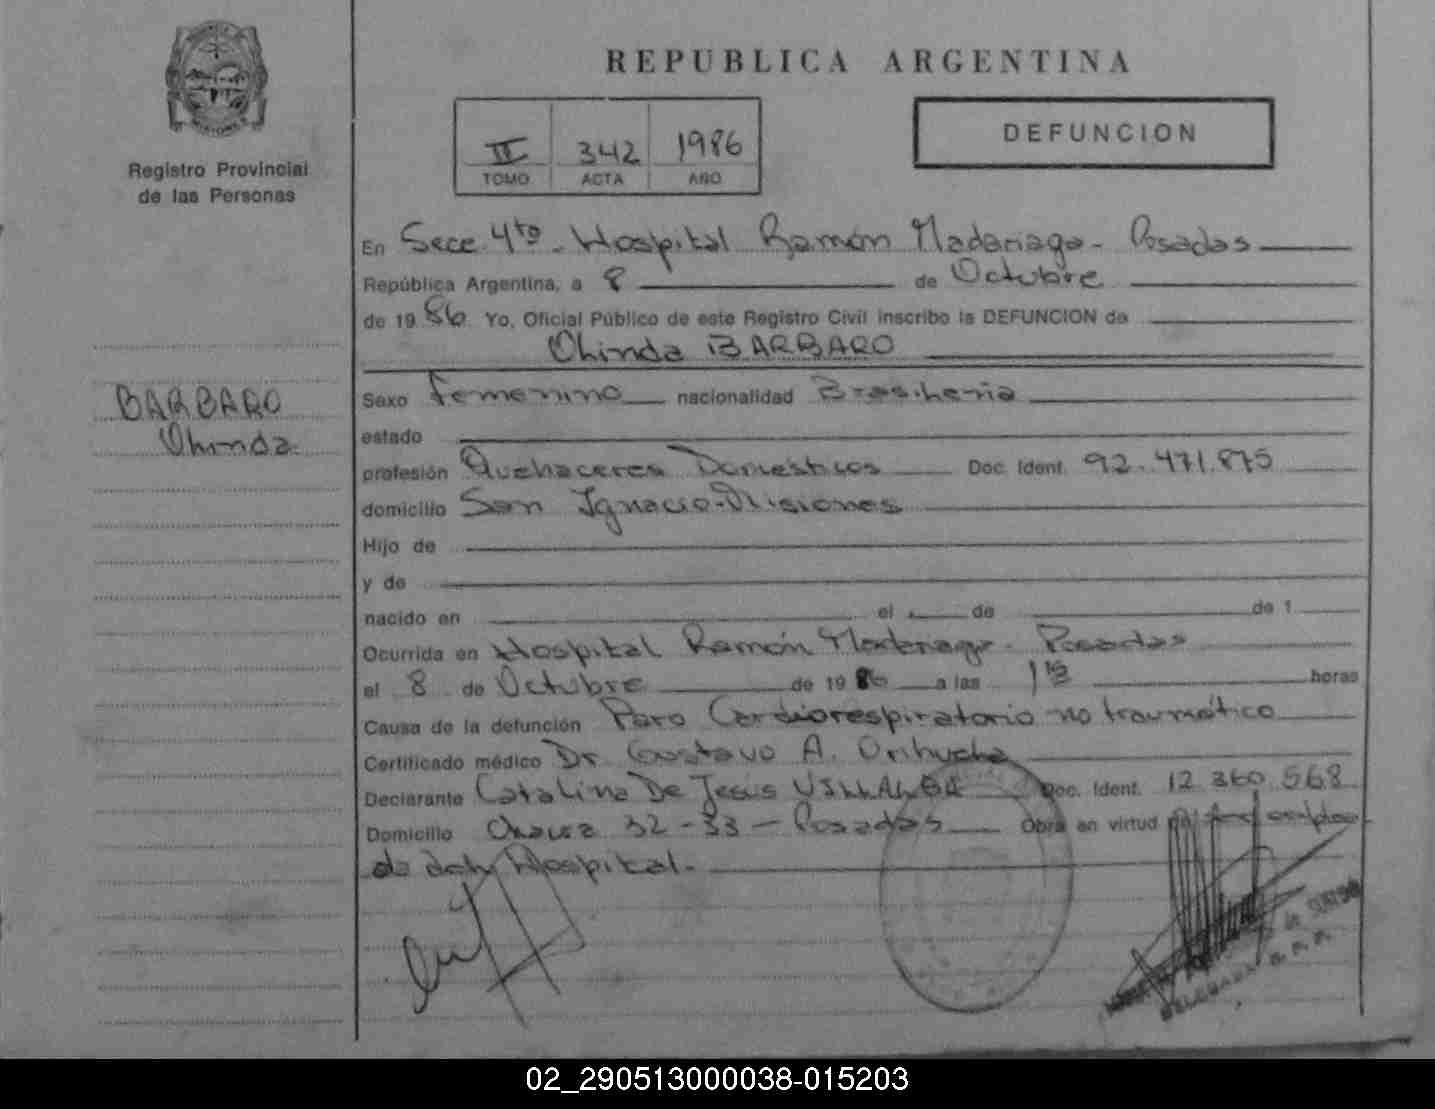 REPUBLICA ARGENTINA
Registro Provincial
de las Personas
II 342 1986
TOMO ACTA AÑO
DEFUNCION
En Secc. 4ta - Hospital Ramón Madariaga - Posadas
República Argentina, a 8 de Octubre
de 1986 Yo, Oficial Público de este Registro Civil inscribo la DEFUNCION de
Olinda BARBARO
BARBARO
Olinda
Sexo Femenino nacionalidad Brasileña
estado
profesión Quehaceres Domésticos Doc. Ident. 92.471.875
domicilio San Ignacio - Misiones
Hijo de
y de
nacido en el de de 1
Ocurrida en Hospital Ramón Madariaga - Posadas
el 8 de Octubre de 1986 a las horas
Causa de la defunción Paro Cardiorespiratorio no traumático
Certificado médico Dr. Gustavo A. Orihuela
Declarante Catalina De Jesús VILLALBA Doc. Ident. 12.360.568
Domicilio 32-33 - Posadas Obra en virtud
de Hospital.
02_290513000038-015203